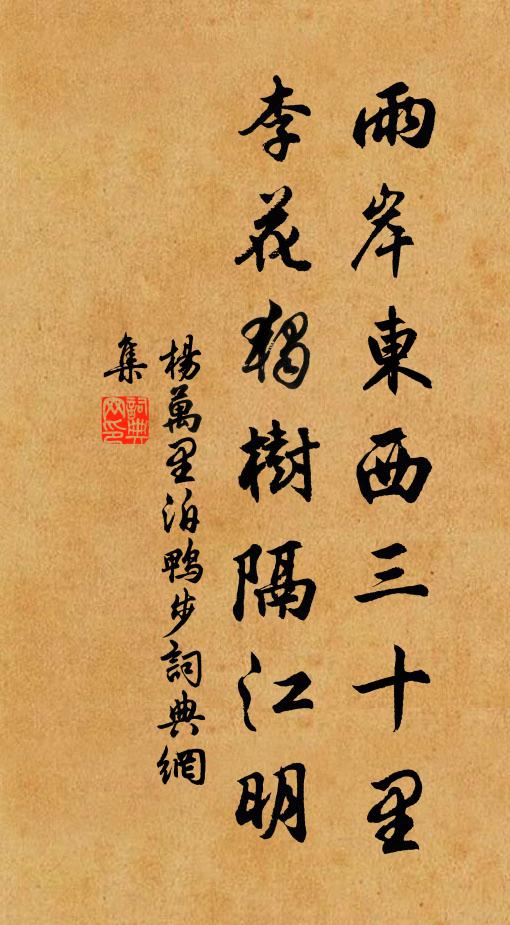 兩岸東西三十里
李花獨樹隔江明
楊萬里泊鴨步詞典網
集
詞典
网印